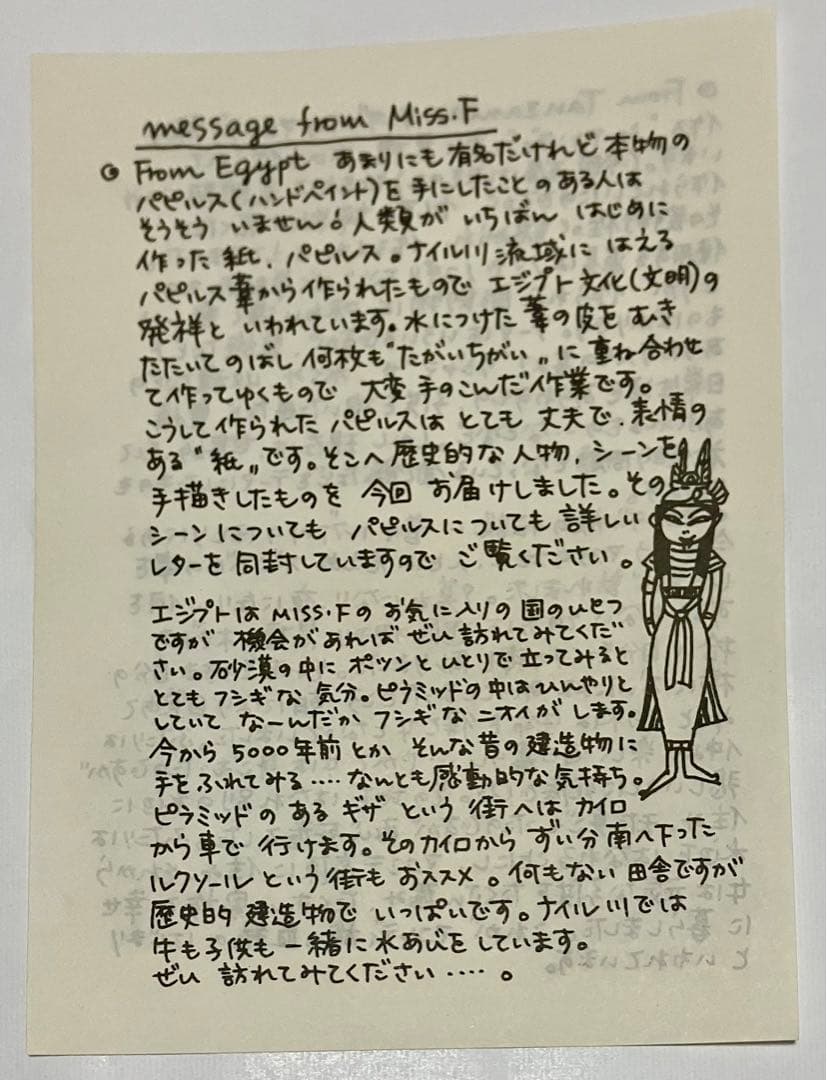 message from Miss.F
From Egypt あまりにも有名だけれど本物の
パピルス(ハンドペイント)を手にしたことのある人は
そうそう いません。人類が いちばん はじめに
作った 紙、パピルス。ナイル川流域に はえる
パピルス葦から作られたもので エジプト文化(文明)の
発祥と いわれています。水につけた 葦の皮を むき
たたいてのばし 何枚も“たがいちがい„に 重ね合わせ
て作ってゆくもので 大変 手のこんだ作業です。
こうして作られた パピルスは とても 丈夫で、表情の
ある“紙„です。そこへ歴史的な人物、シーンを
手描きしたものを 今回 お届けしました。その
シーンについても パピルスについても 詳しい
レターを 同封していますので ご覧ください。
エジプトは MISS.Fの お気に入りの 国のひとつ
ですが 機会があれば ぜひ 訪れてみてくだ
さい。砂漠の中に ポツンと ひとりで立ってみると
とても フシギな 気分。ピラミッドの中はひんやりと
していて なーんだか フシギな ニオイがします。
今から 5000年前とか そんな昔の 建造物に
手をふれてみる‥‥なんとも感動的な気持ち。
ピラミッドの ある ギザ という 街へは カイロ
から車で 行けます。そのカイロから ずい分 南へ下った
ルクソールという街も おススメ。何もない 田舎ですが
歴史的 建造物で いっぱいです。ナイル川では
牛も子供も 一緒に水あびを しています。
ぜひ 訪れてみてください‥‥。